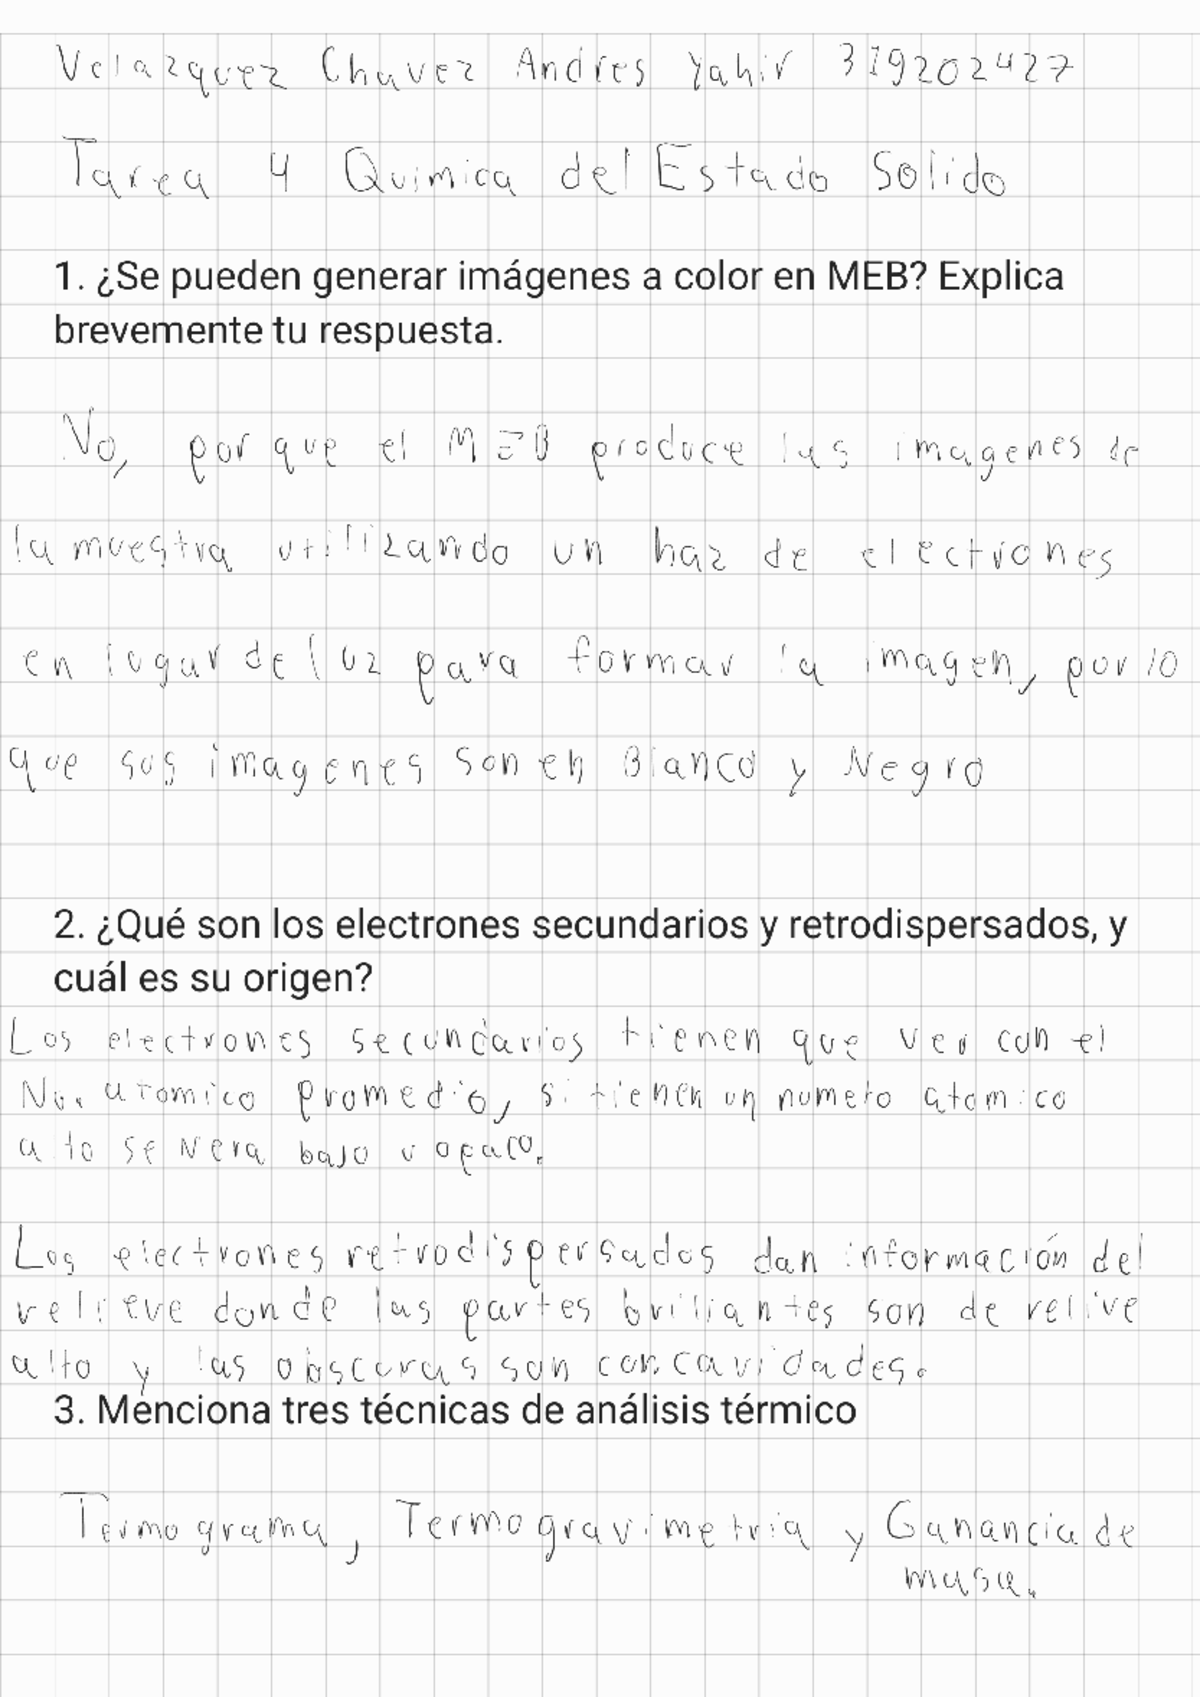 Velazquez Chavez Andres Yahir 319202427
Tarea 4 Quimica del Estado Solido
1. ¿Se pueden generar imágenes a color en MEB? Explica
brevemente tu respuesta.
No, por que el MEB produce las imagenes de
la muestra utilizando un haz de electrones
en lugar de luz para formar la imagen, por lo
que sus imagenes son en Blanco y Negro
2. ¿Qué son los electrones secundarios y retrodispersados, y
cuál es su origen?
Los electrones secundarios tienen que ver con el
No. atomico promedio, si tienen un numero atomico
alto se vera bajo u opaco.
Los electrones retrodispersados dan información del
relieve donde las partes brillantes son de relive
alto y las obscuras son concavidades.
3. Menciona tres técnicas de análisis térmico
Termograma, Termogravimetria y Ganancia de
masa.